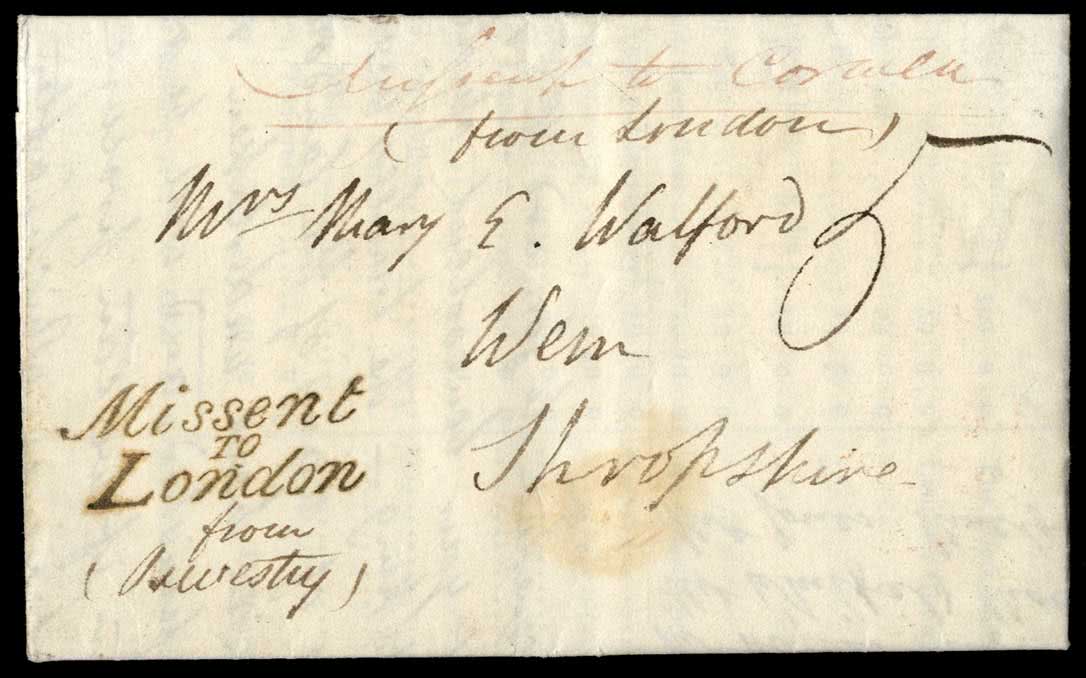 Missent to Corwen
(from London)
5
Mrs Mary E. Walford
Wem
Shropshire
Missent
TO
London
from
(Oswestry)